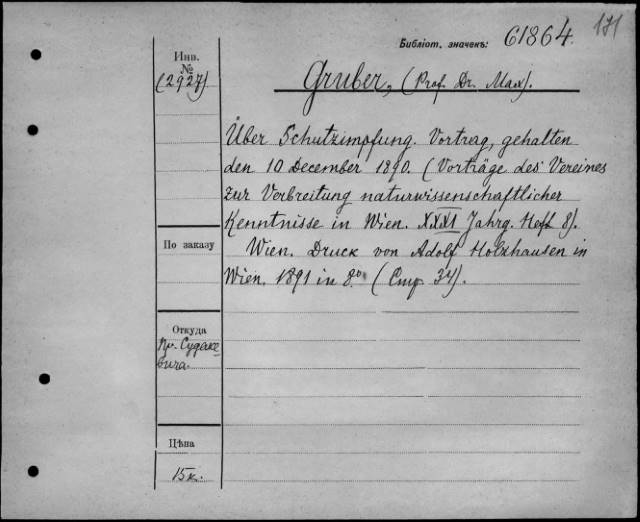 171
Библіот. значекъ: 61864.
Инв.
№
(2927)
Gruber, (Prof. Dr. Max).
Über Schutzimpfung. Vortrag, gehalten
den 10 December 1890. (Vorträge des Vereines
zur Verbreitung naturwissenschaftlicher
Kenntnisse in Wien. XXXI Jahrg. Heft 8).
Wien. Druck von Adolf Holzhausen in
Wien. 1891 in 8.º (Стр 34).
По заказу
Откуда
Судаке-
вича.
Цѣна
15 к.